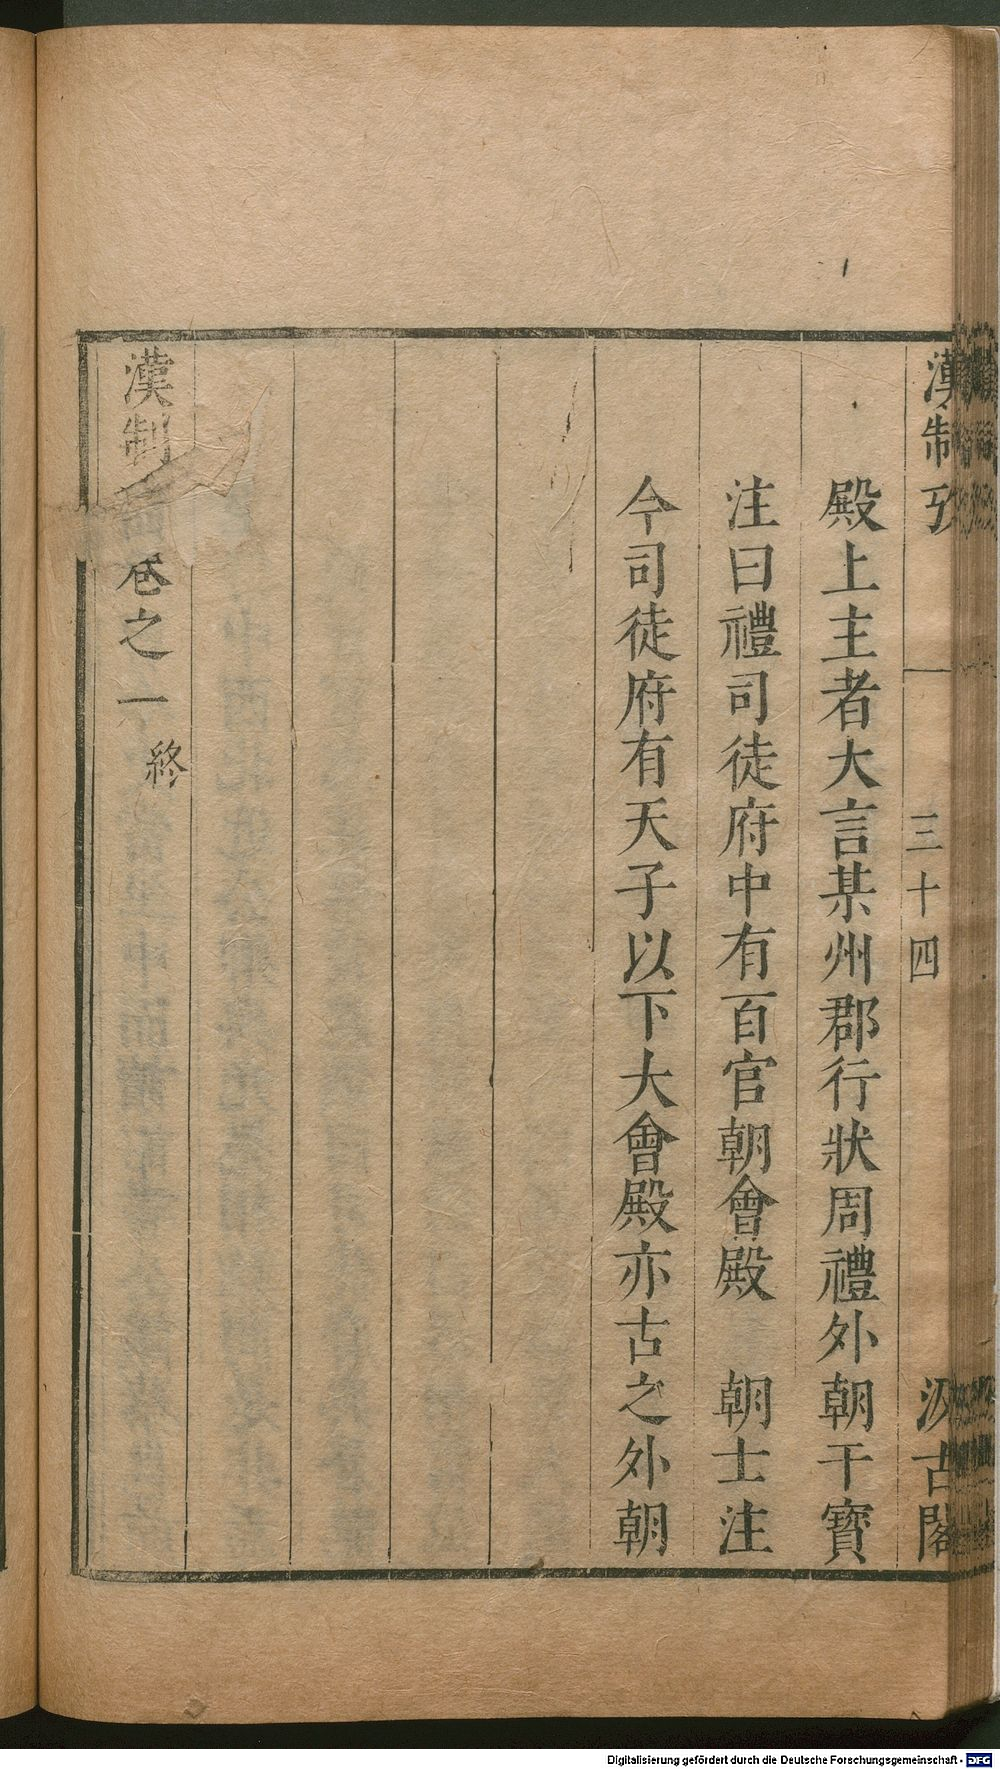 漢制攷
三十四
汲古閣
殿上主者大言某州郡行狀周禮外朝干寶
注曰禮司徒府中有百官朝會殿　朝士注
今司徒府有天子以下大會殿亦古之外朝
漢制卷之一終
Digitalisierung gefördert durch die Deutsche Forschungsgemeinschaft - DFG